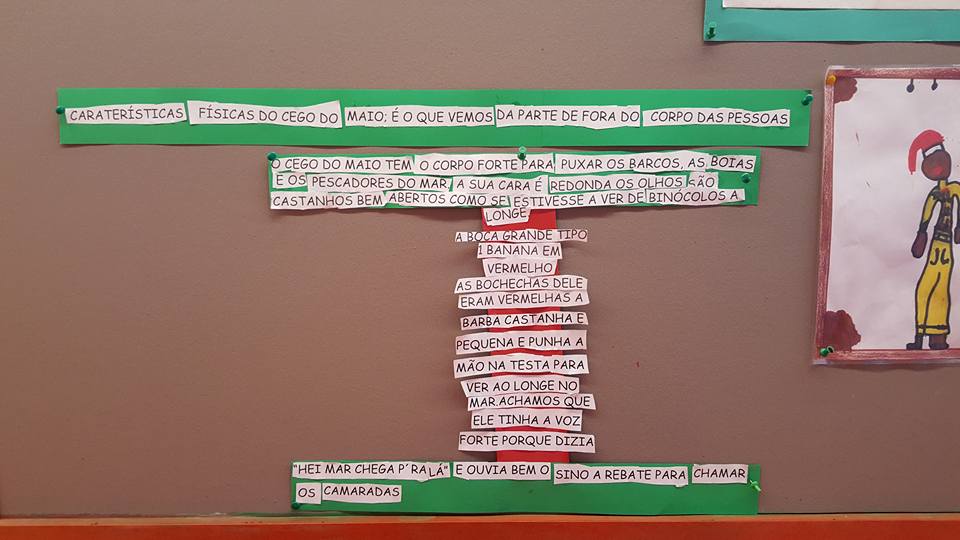 CARATERÍSTICAS FÍSICAS DO CEGO DO MAIO; É O QUE VEMOS DA PARTE DE FORA DO CORPO DAS PESSOAS
O CEGO DO MAIO TEM O CORPO FORTE PARA PUXAR OS BARCOS, AS BOIAS
E OS PESCADORES DO MAR, A SUA CARA É REDONDA OS OLHOS SÃO
CASTANHOS BEM ABERTOS COMO SE ESTIVESSE A VER DE BINÓCOLOS A
LONGE
A BOCA GRANDE TIPO
1 BANANA EM
VERMELHO
AS BOCHECHAS DELE
ERAM VERMELHAS A
BARBA CASTANHA E
PEQUENA E PUNHA A
MÃO NA TESTA PARA
VER AO LONGE NO
MAR.ACHAMOS QUE
ELE TINHA A VOZ
FORTE PORQUE DIZIA
"HEI MAR CHEGA P´RA LÁ" E OUVIA BEM O SINO A REBATE PARA CHAMAR
OS CAMARADAS